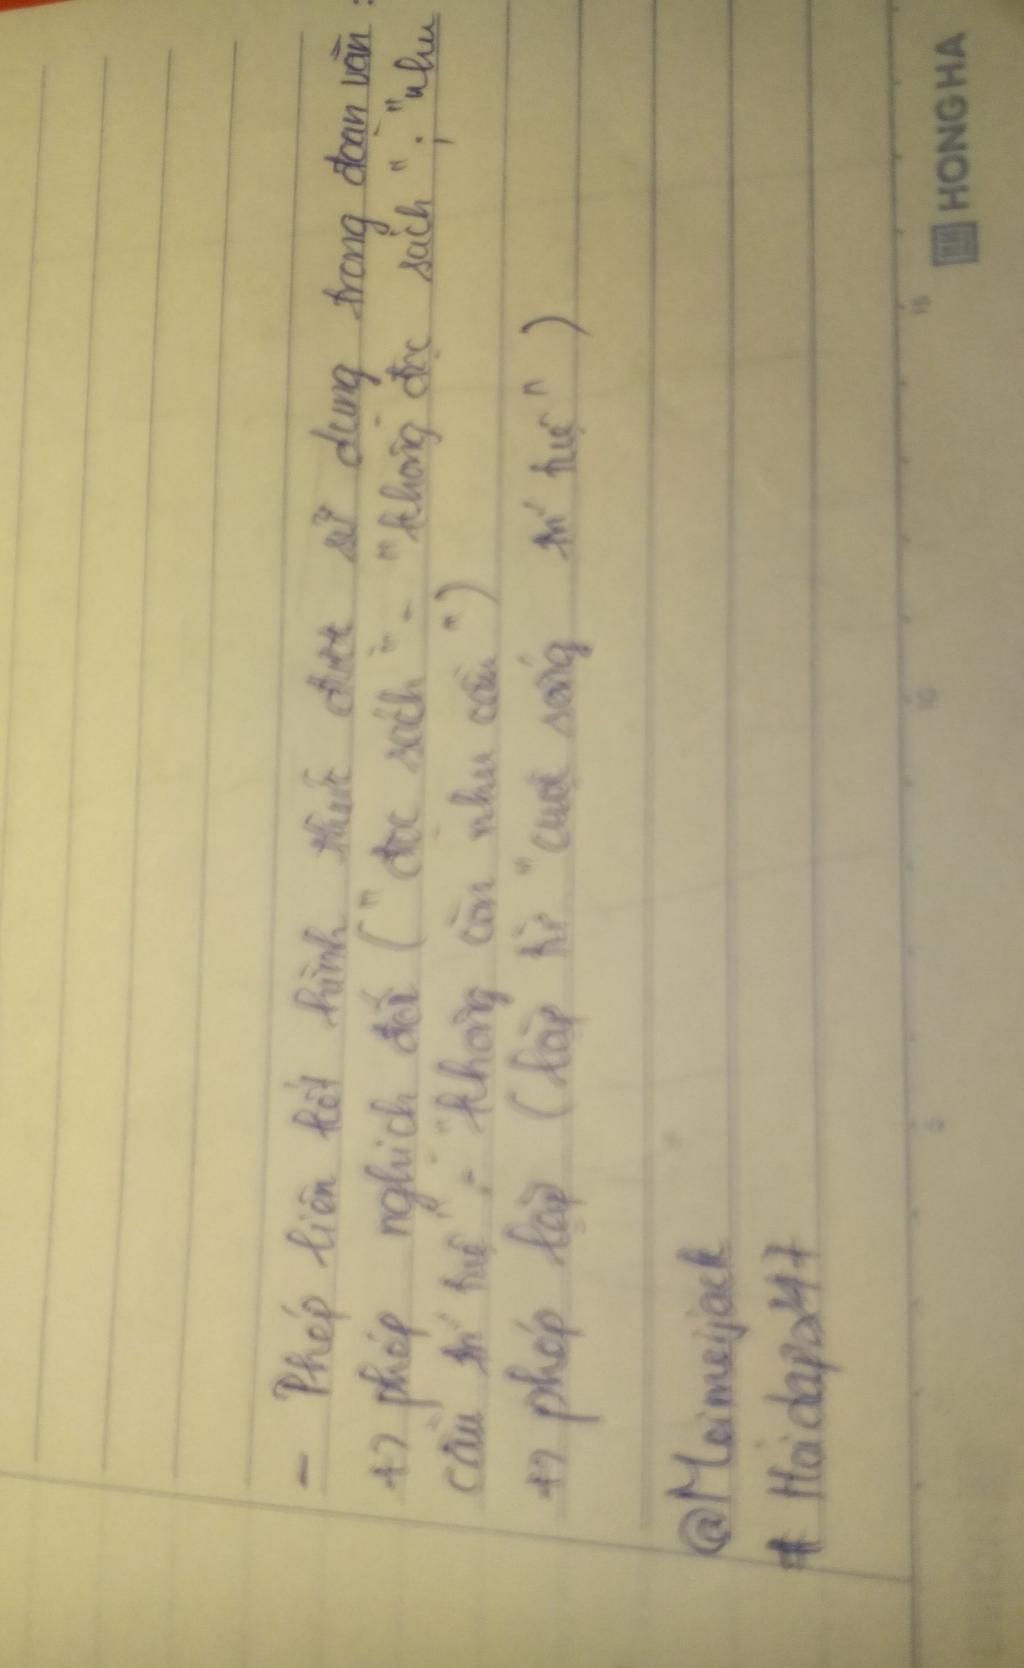 - Phép liên kết hình thức được sử dụng trong đoạn văn :
+) phép nghịch đối ("đọc sách" - "không đọc sách" ; "nhu
cầu trí tuệ" - "không còn nhu cầu")
+) phép lặp (lặp từ "cuộc sống trí tuệ")
@Moimeijack
# Hoidap247
HONG HA
5
10
15